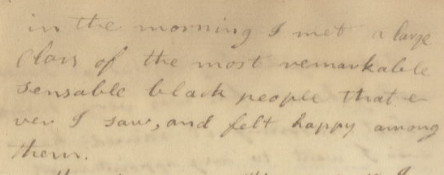 in the morning I met a large
Class of the most remarkable
sensable black people that e-
ver I saw, and felt happy among
them.